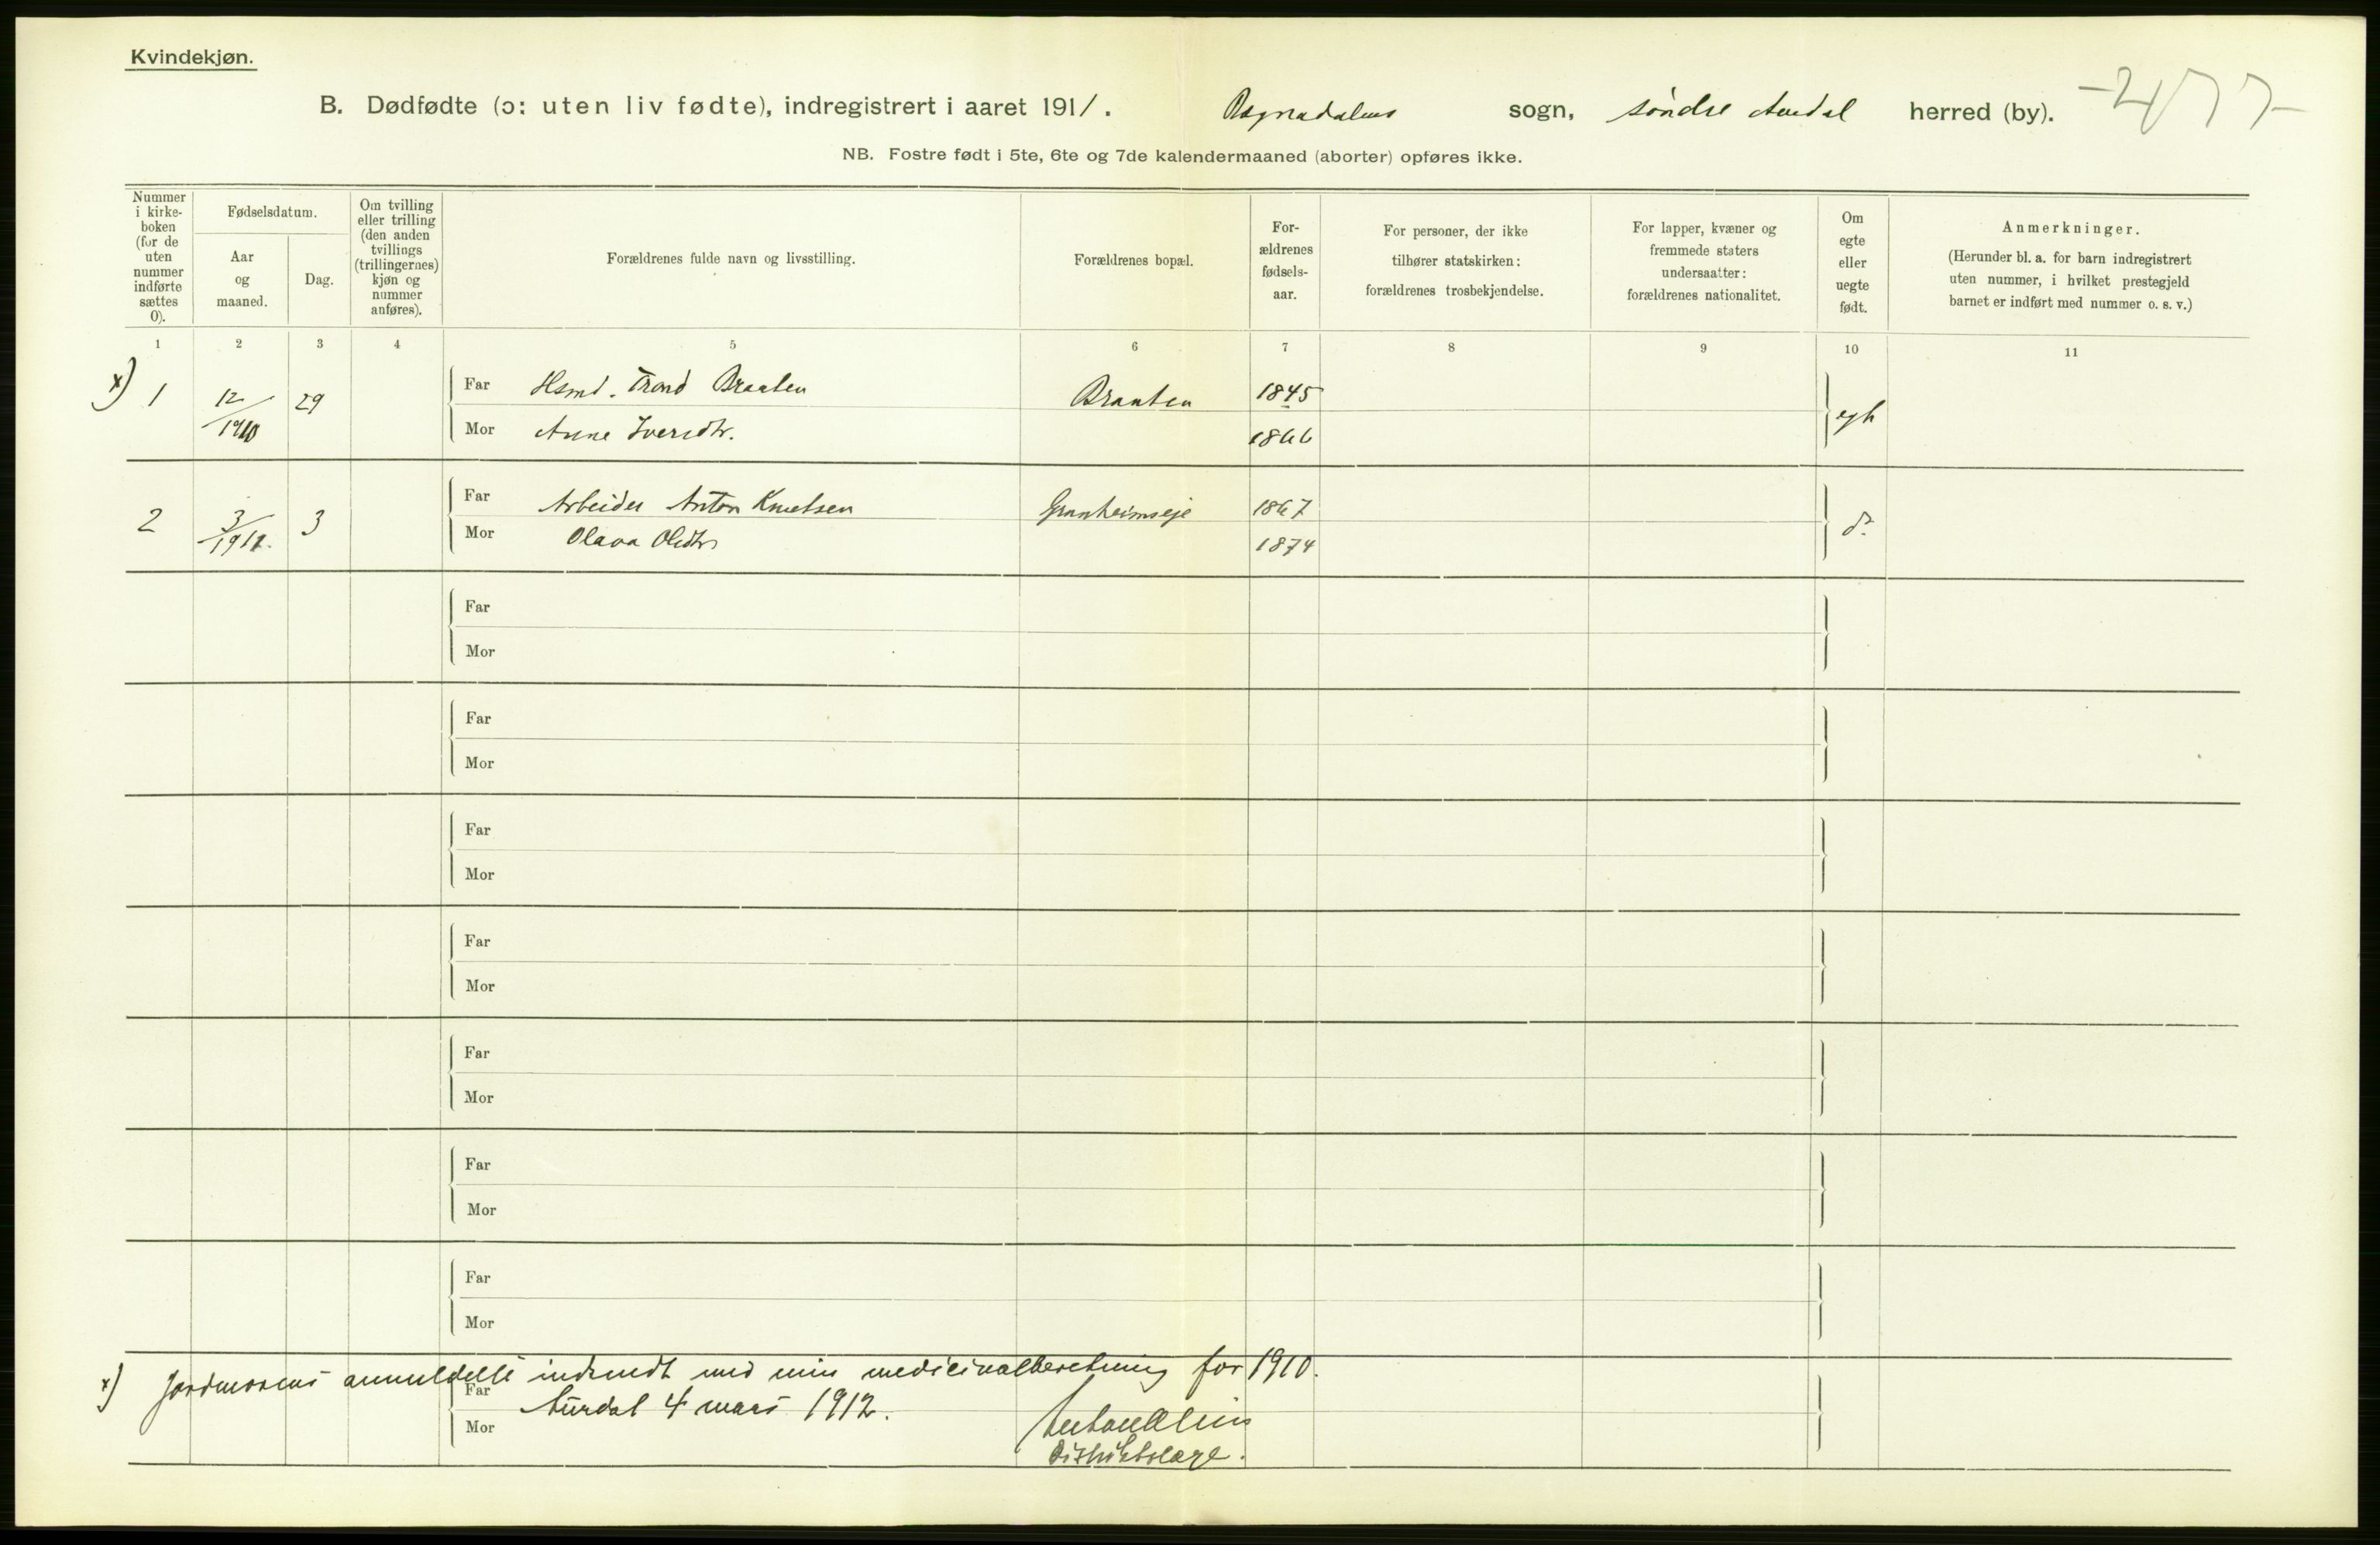 Kvindekjøn.
B. Dødfødte (ɔ: uten liv fødte), indregistrert i aaret 1911. Bagnadalens sogn, søndre Aurdal herred (by).
-277-
NB. Fostre født i 5te, 6te og 7de kalendermaaned (aborter) opføres ikke.
Nummer i kirke-boken (for de uten nummer indførte sættes 0).
Fødselsdatum.
Aar og maaned.
Dag.
Om tvilling eller trilling (den anden tvillings (trillingernes) kjøn og nummer anføres).
Forældrenes fulde navn og livsstilling.
Forældrenes bopæl.
For-ældrenes fødsels-aar.
For personer, der ikke tilhører statskirken: forældrenes trosbekjendelse.
For lapper, kvæner og fremmede staters undersaatter: forældrenes nationalitet.
Om egte eller uegte født.
Anmerkninger.
(Herunder bl. a. for barn indregistrert uten nummer, i hvilket prestegjeld barnet er indført med nummer o. s. v.)
1 2 3 4 5 6 7 8 9 10 11
x) 1 12/1910 29 Far Hsmd. Trond Braaten Braaten 1845 egte
Mor Anne Iversdtr. 1866
2 3/1911. 3 Far Arbeider Anton Knutsen Granheimseje 1867 do
Mor Olava Olsdtr 1874
Far
Mor
Far
Mor
Far
Mor
Far
Mor
Far
Mor
Far
Mor
Far
Mor
x) Jordmorens anmeldelse indsendt med min medicinalberetning for 1910.
Far Aurdal 4 mars 1912.
Mor
Distriktslæge.